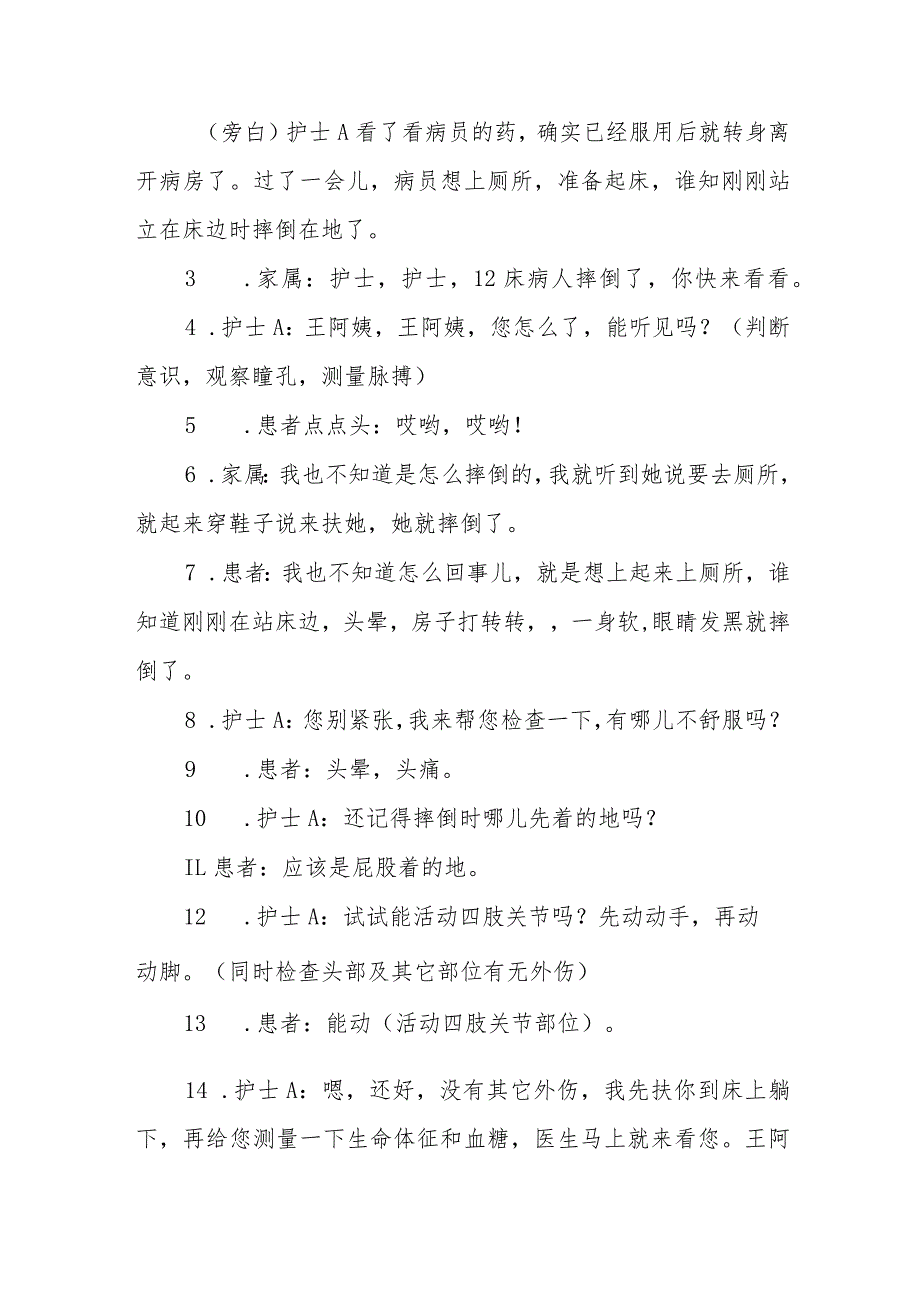 （旁白）护士 A 看了看病员的药，确实已经服用后就转身离
开病房了。过了一会儿，病员想上厕所，准备起床，谁知刚刚站
立在床边时摔倒在地了。
3 .家属：护士，护士，12床病人摔倒了，你快来看看。
4 .护士A：王阿姨，王阿姨，您怎么了，能听见吗？（判断
意识，观察瞳孔，测量脉搏）
5 .患者点点头：哎哟，哎哟！
6 .家属：我也不知道是怎么摔倒的，我就听到她说要去厕所，
就起来穿鞋子说来扶她，她就摔倒了。
7 .患者：我也不知道怎么回事儿，就是想上起来上厕所，谁
知道刚刚在站床边，头晕，房子打转转，，一身软,眼睛发黑就摔
倒了。
8 .护士A：您别紧张，我来帮您检查一下，有哪儿不舒服吗？
9 .患者：头晕，头痛。
10 .护士A：还记得摔倒时哪儿先着的地吗？
IL患者：应该是屁股着的地。
12 .护士A：试试能活动四肢关节吗？先动动手，再动
动脚。（同时检查头部及其它部位有无外伤）
13 .患者：能动（活动四肢关节部位）。
14 .护士A：嗯，还好，没有其它外伤，我先扶你到床上躺
下，再给您测量一下生命体征和血糖，医生马上就来看您。王阿